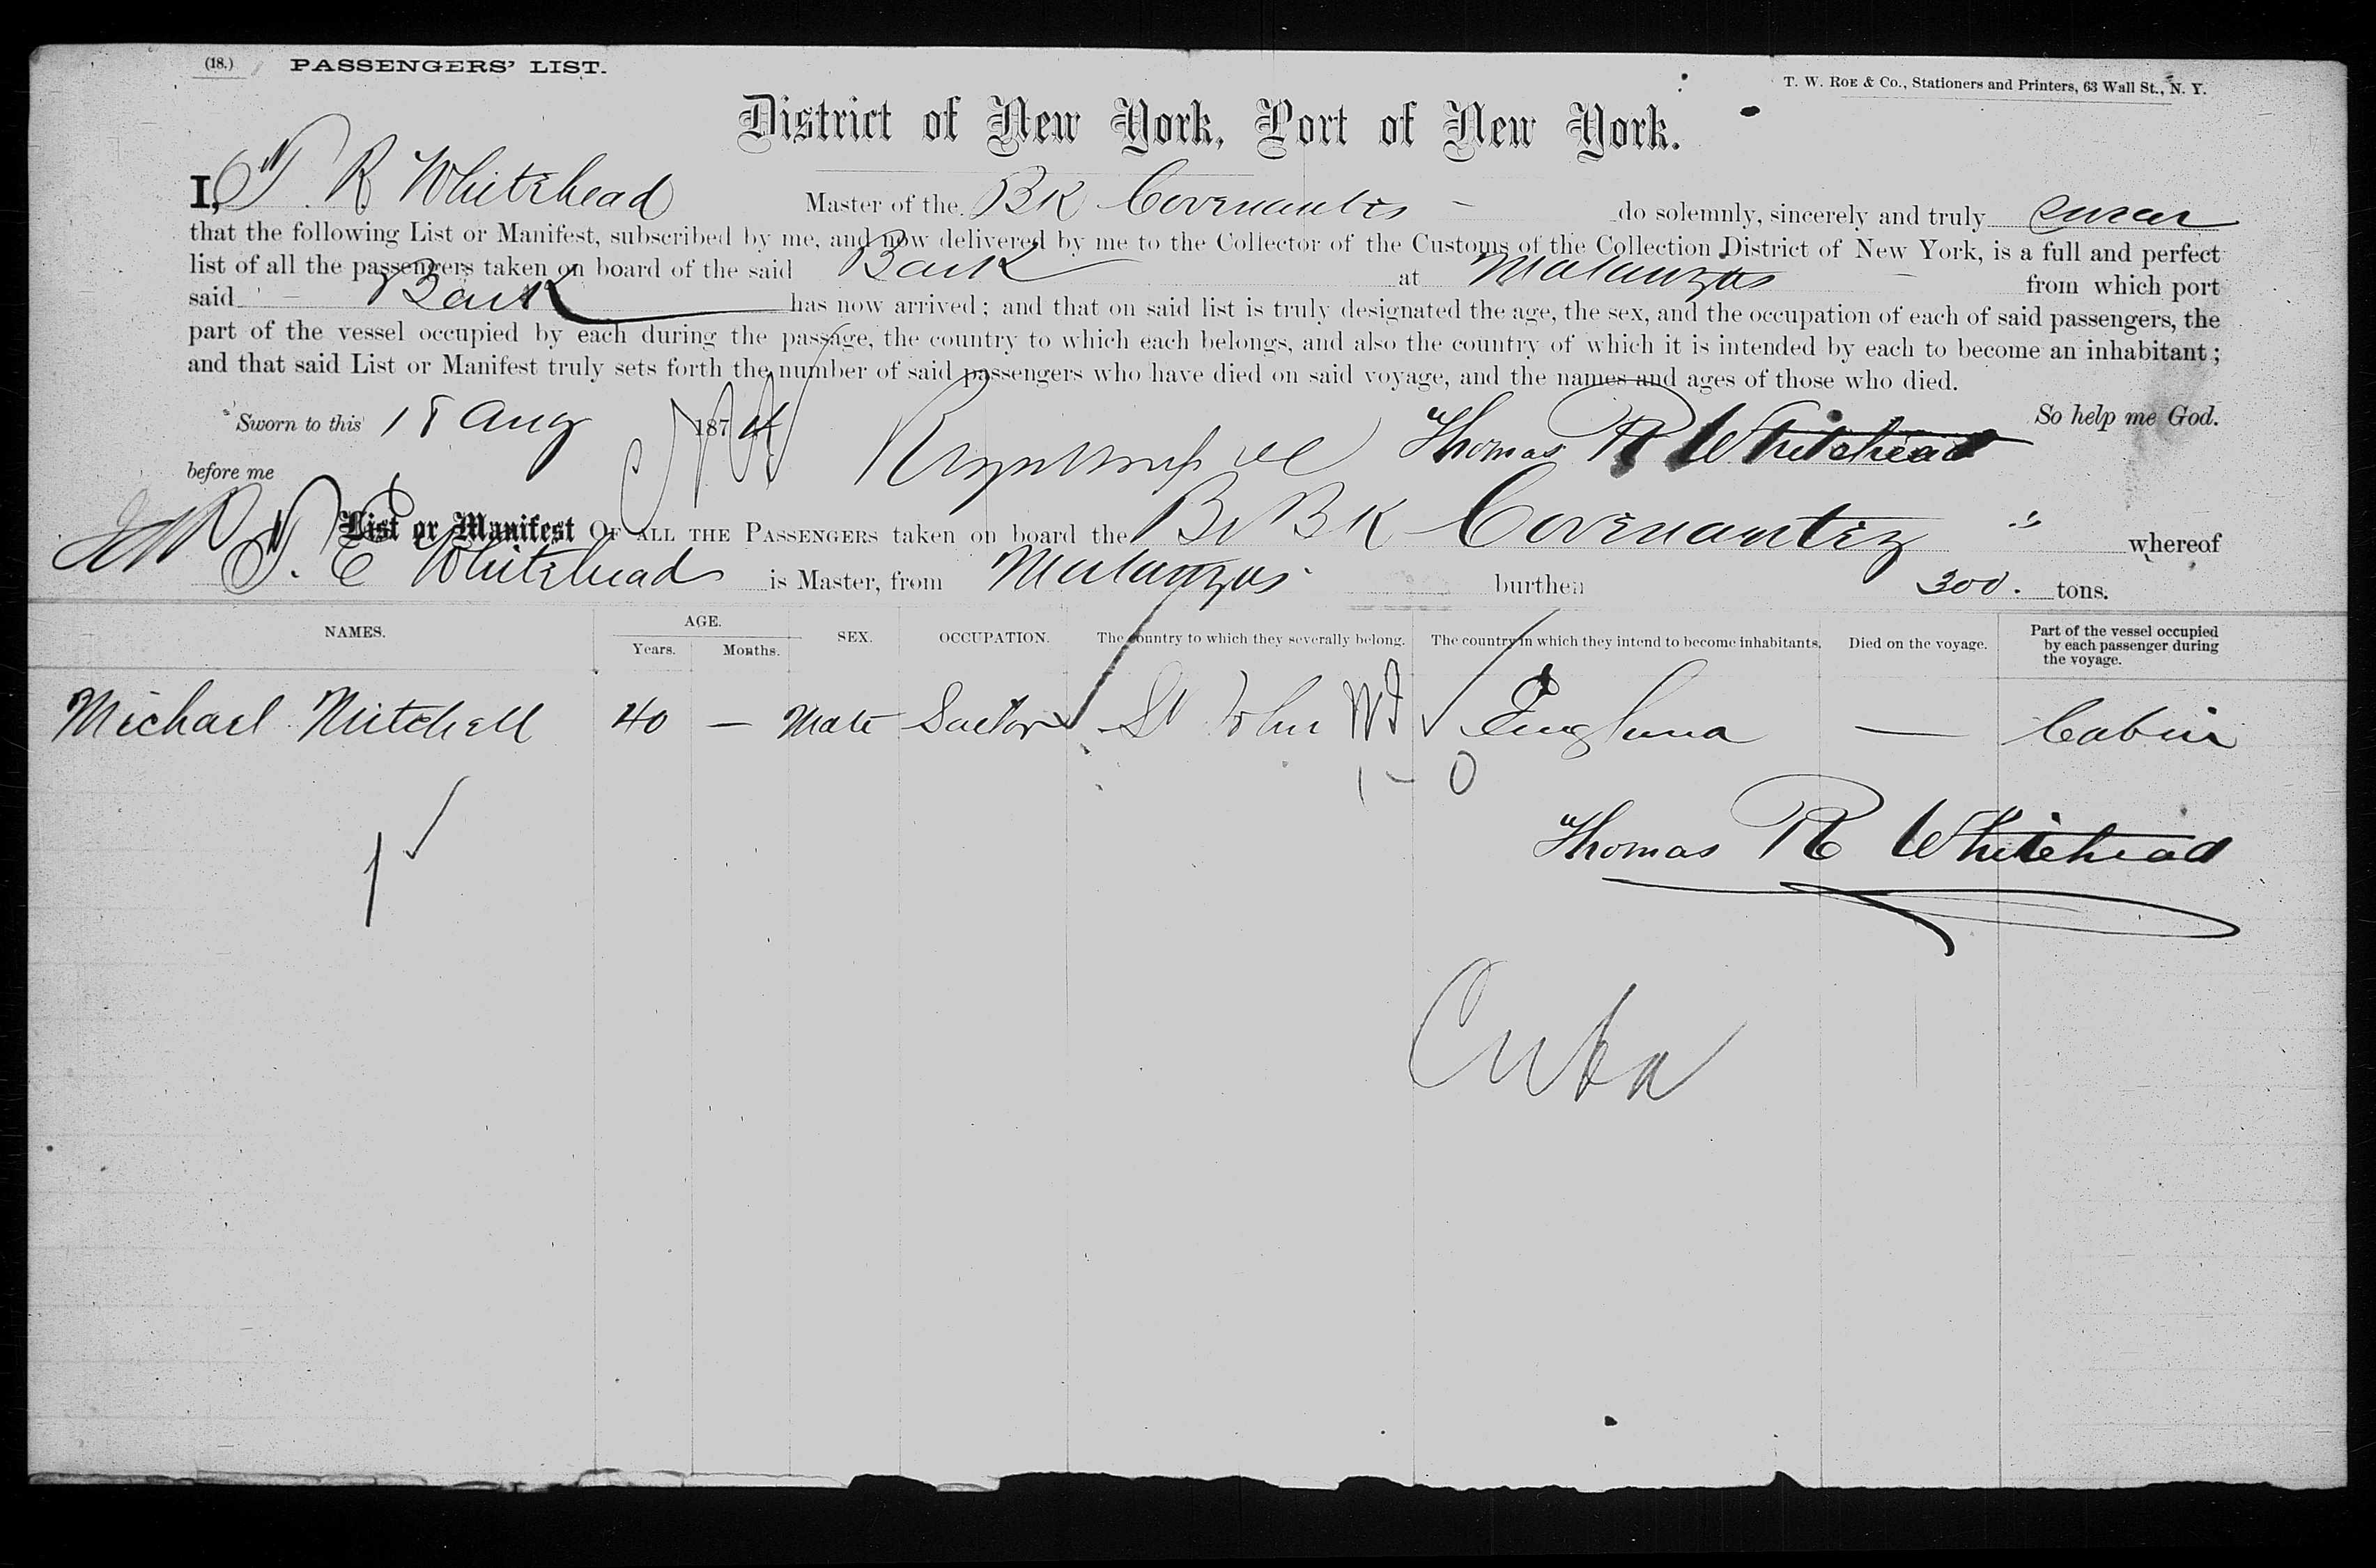 (18.) PASSENGERS' LIST.
T. W. ROE & CO., Stationers and Printers, 63 Wall St., N. Y.
District of New York, Port of New York.
I, T R Whitehead Master of the Bk do solemnly, sincerely and truly swear
that the following List or Manifest, subscribed by me, and now delivered by me to the Collector of the Customs of the Collection District of New York, is a full and perfect
list of all the passengers taken on board of the said Bark at Matanzas from which port
said Bark has now arrived; and that on said list is truly designated the age, the sex, and the occupation of each of said passengers, the
part of the vessel occupied by each during the passage, the country to which each belongs, and also the country of which it is intended by each to become an inhabitant;
and that said List or Manifest truly sets forth the number of said passengers who have died on said voyage, and the names and ages of those who died.
Sworn to this 18 Aug 1874 Thomas R Whitehead So help me God.
before me
List or Manifest OF ALL THE PASSENGERS taken on board the Br Bk whereof
Whitehead is Master, from Matanzas burthen 300. tons.
NAMES. AGE. Years. Months. SEX. OCCUPATION. The country to which they severally belong. The country in which they intend to become inhabitants. Died on the voyage. Part of the vessel occupied by each passenger during the voyage.
Michael Mitchell 40 — Male St John England — Cabin
1 - 0
1
Thomas R Whitehead
Cuba